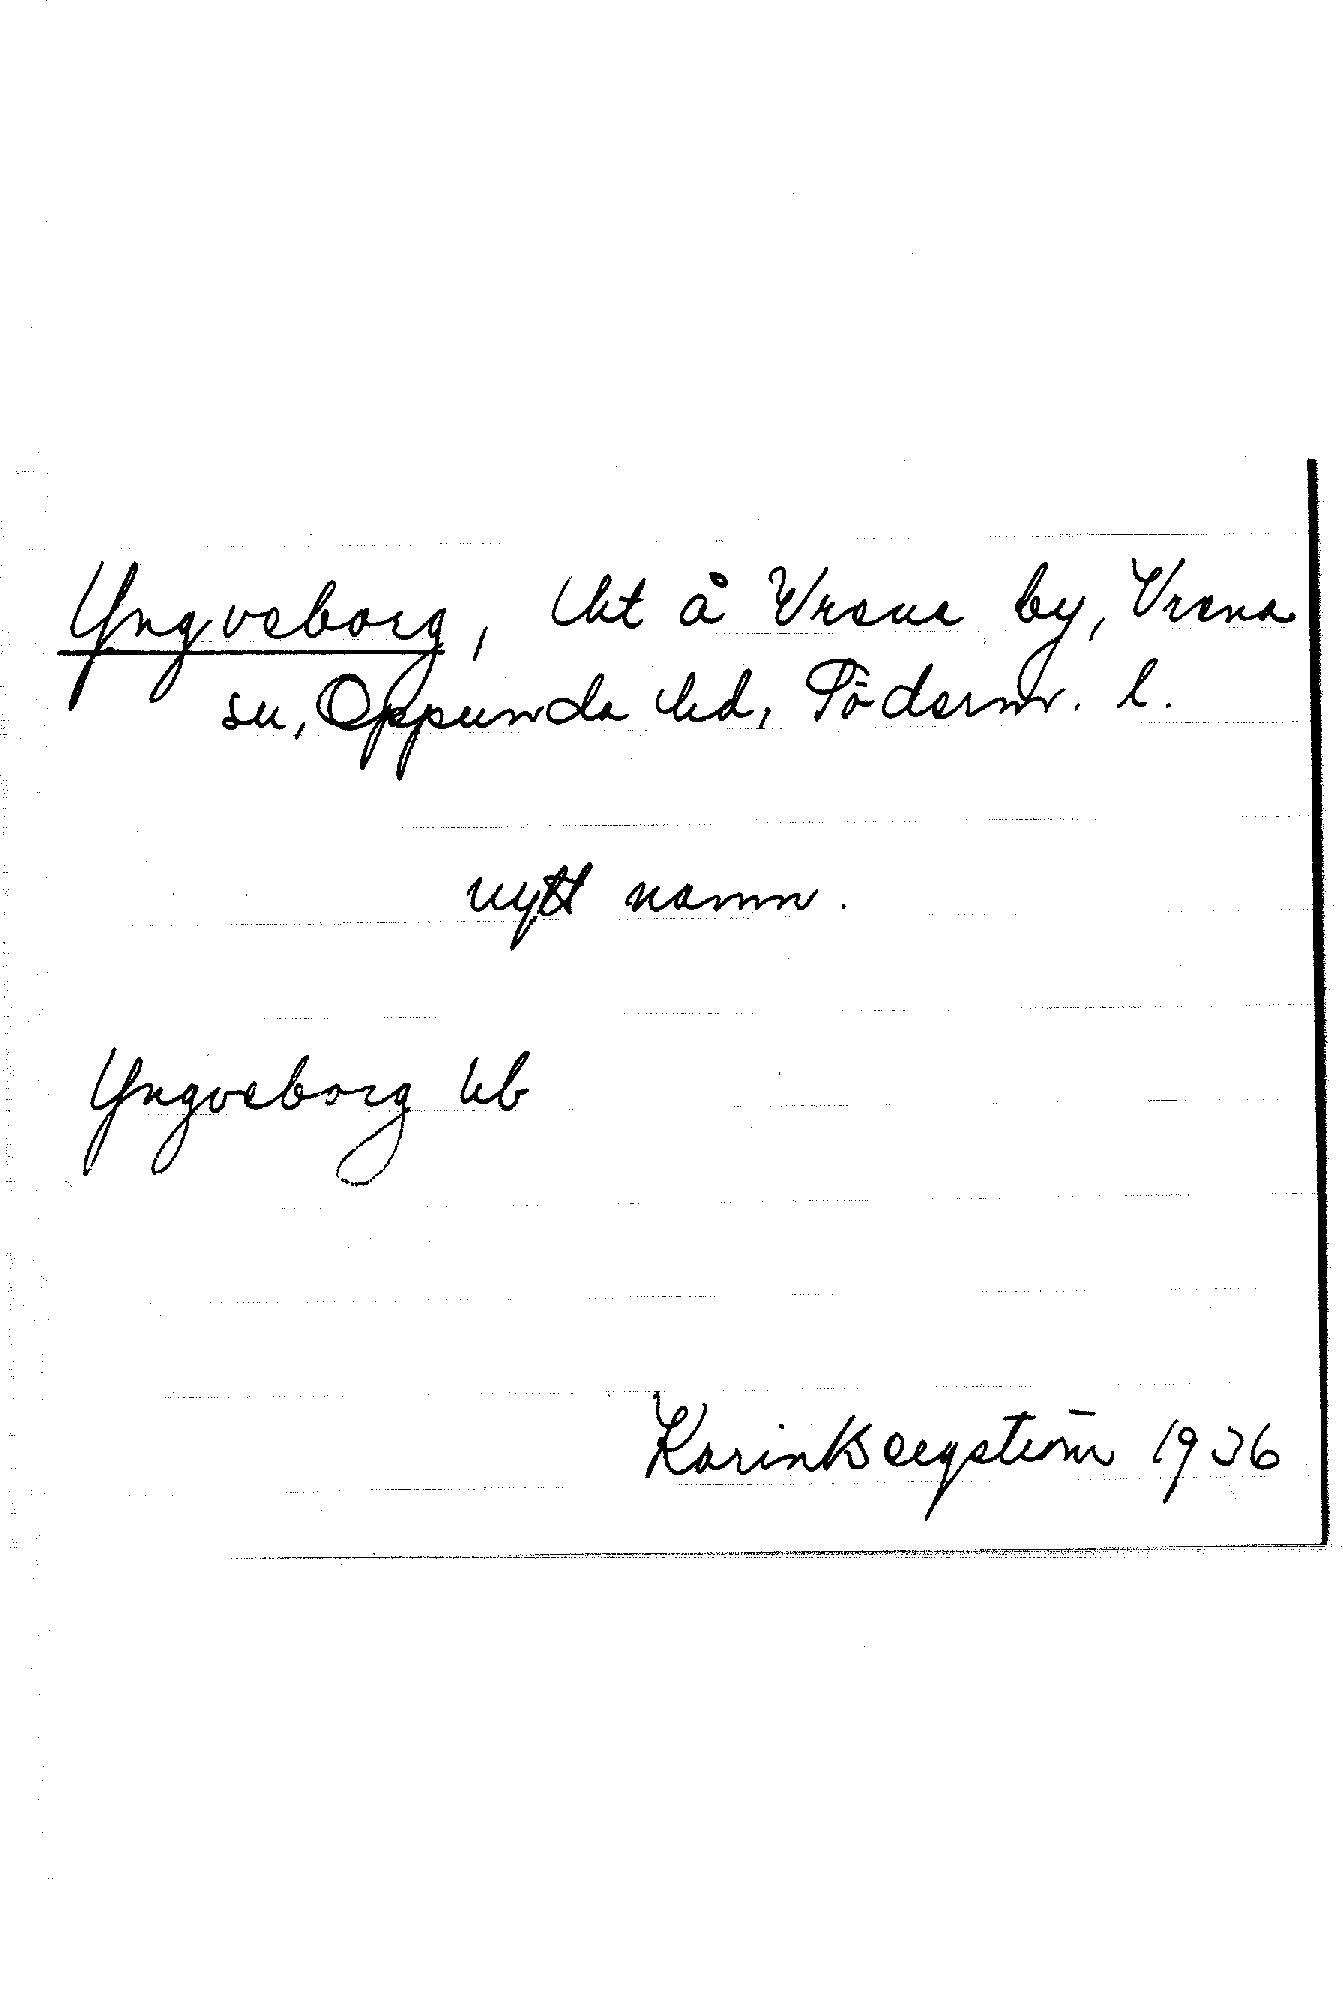 Yngveborg, lht å Vrena by, Vrena
sn, Oppunda hd, Söderm. l.
nytt namn.
Yngveborg kb
Karin Bergström 1936